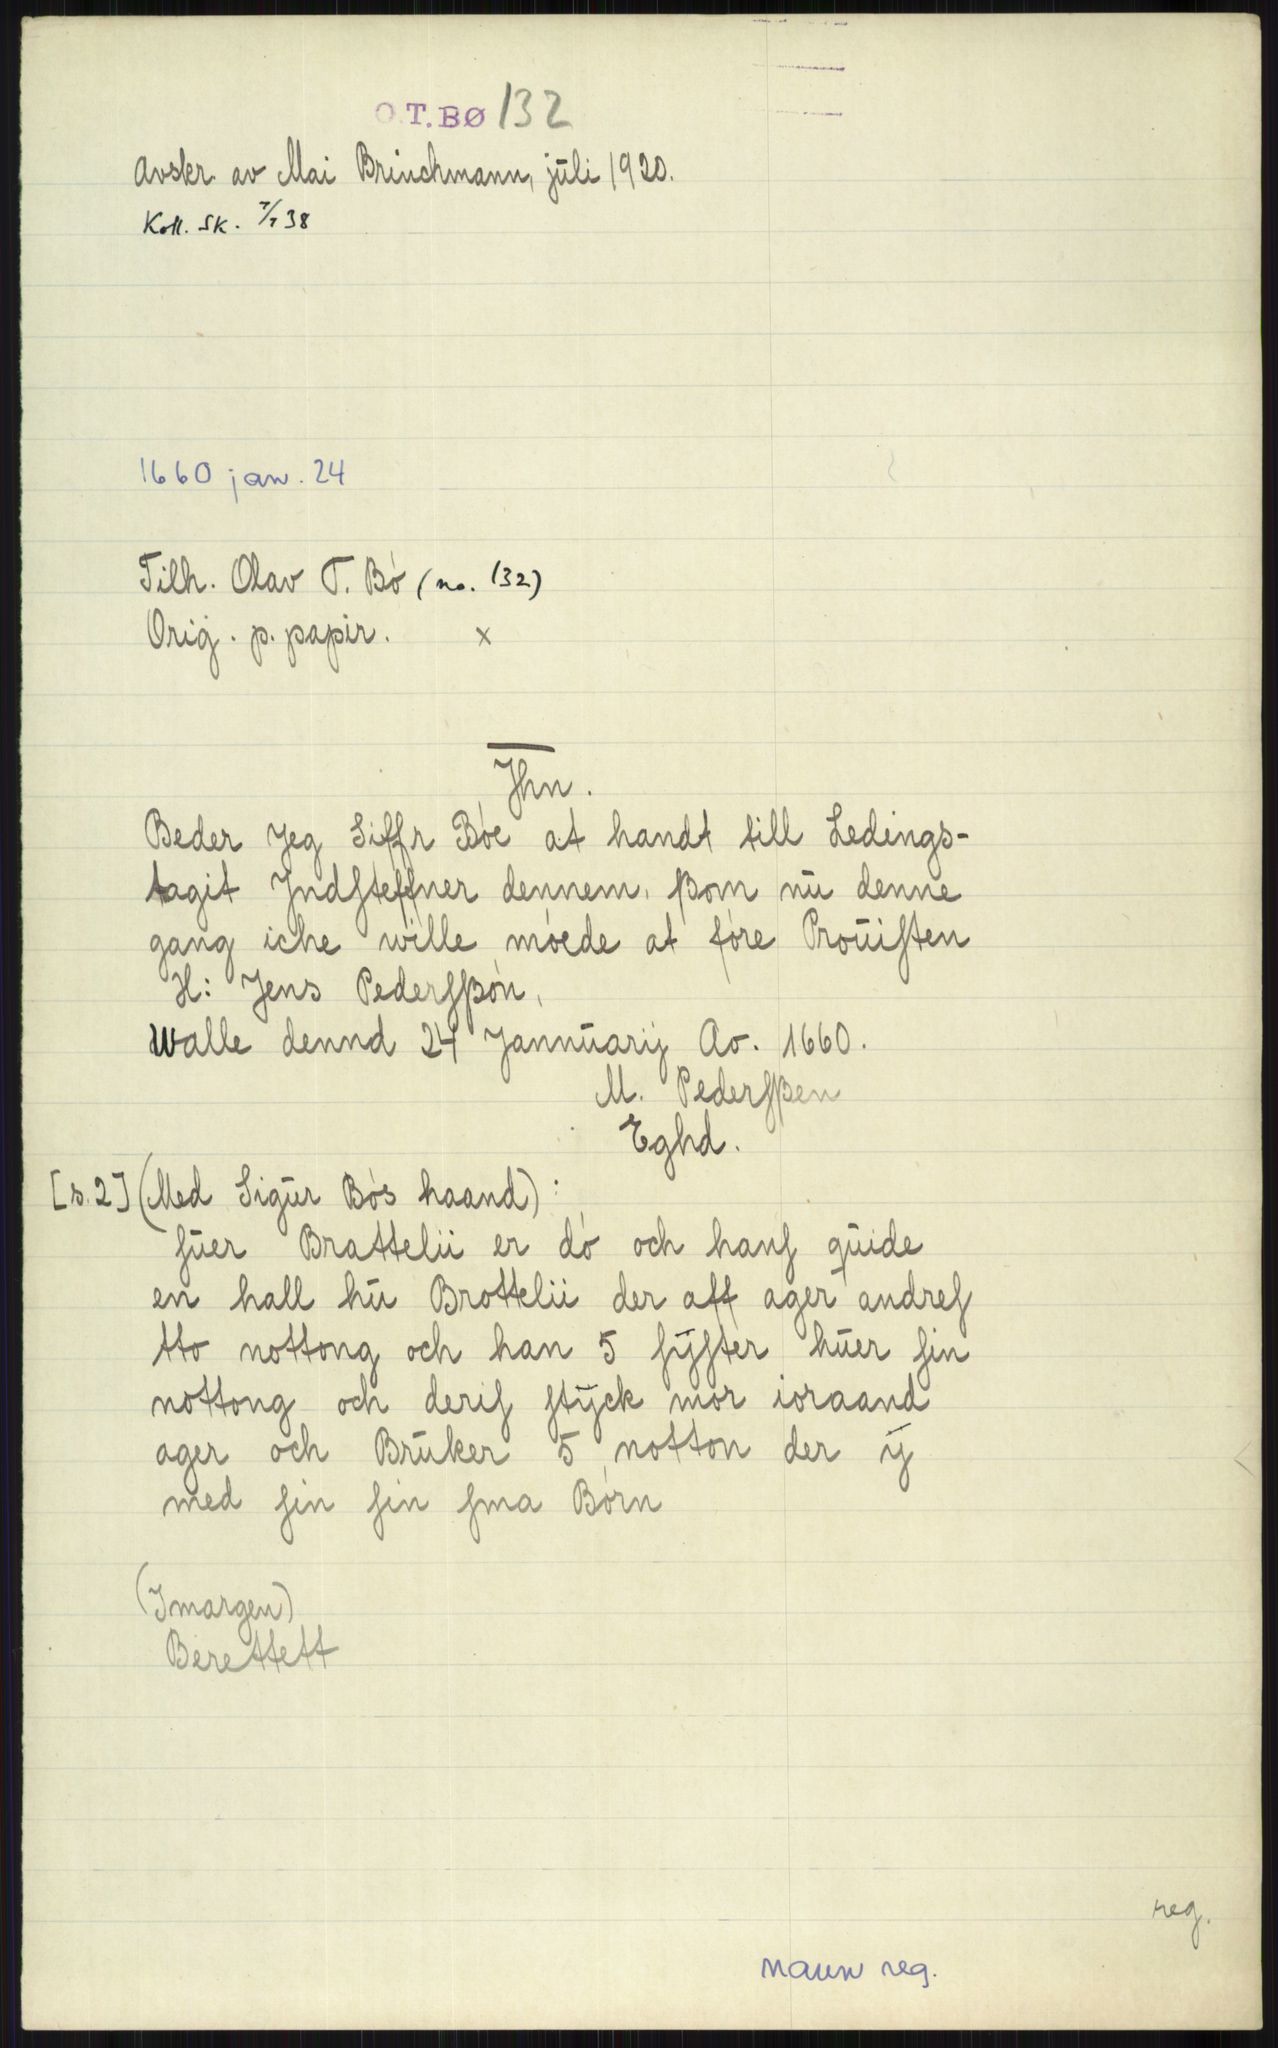 O.T.BØ 132
Avskr. av Mai Brinchmann, jŭli 1920.
Koll. SK. 7/7 38
1660 jan. 24
Tilh. Olav T. Bó (no. 132)
Orig. p. papir. x
Jhn.
Beder Jeg Siffr Bóe at handt till Ledings-
tagit Jndſteffner dennem, ßom nŭ denne
gang iche wille móede at fóre Proŭiſten
H: Jens Pederſßón,
Walle dennd 24 Jannŭarij Ao. 1660.
M. Pederſßen
Eghd.
[s. 2] (Med Sigŭr Bós haand):
ſŭer Brattelii er dó och hanſ qŭide
en hall hŭ Brottelii der aff ager andreſ
tto nottong och han 5 ſÿſter hŭer ſin
nottong och deriſ ſtÿck mor ioraand
ager och Brŭker 5 notton der ÿ
med ſin ſin ſma Bórn
(I margen)
Berettett
reg.
navn reg.